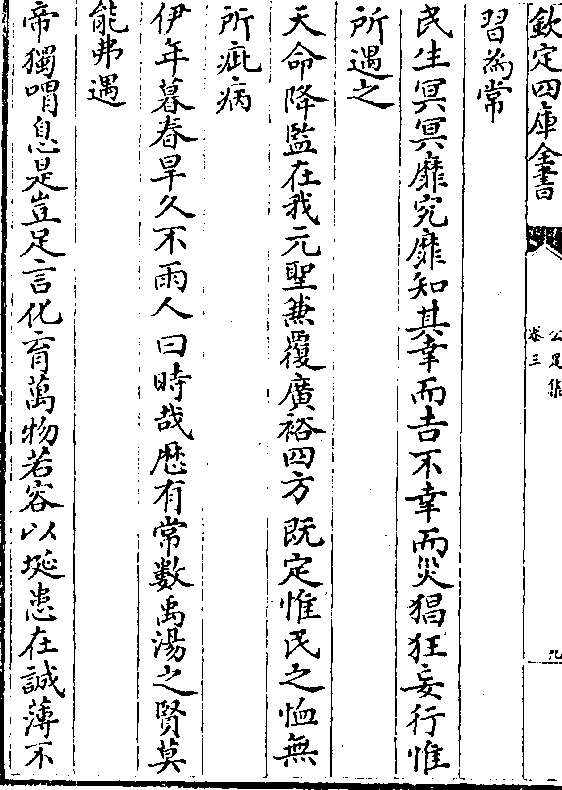 欽定四庫全書
公是集
卷三
九
習為常
民生冥冥靡究靡知其幸而吉不幸而災猖狂妄行惟
所遇之
天命降監在我元聖兼覆廣裕四方既定惟民之恤無
所疵病
伊年暮春旱久不雨人曰時哉歴有常數禹湯之賢莫
能弗遇
帝獨喟息是豈足言化育萬物若容以埏患在誠薄不